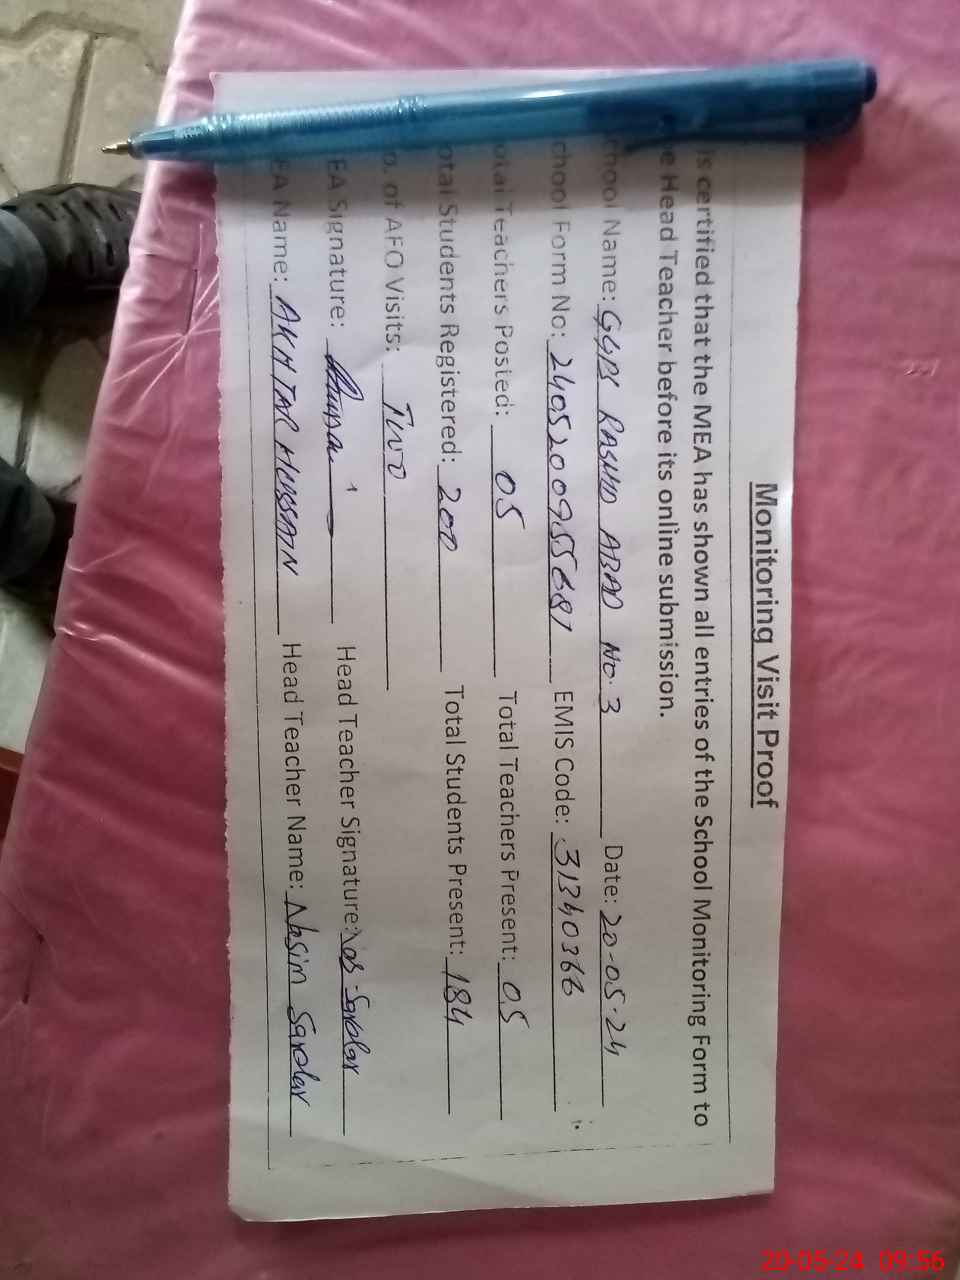 Monitoring Visit Proof
is certified that the MEA has shown all entries of the School Monitoring Form to
e Head Teacher before its online submission.
chool Name: GGPS RASHID ABAD No. 3 Date: 20-05-24
chool Form No: 240520095568 EMIS Code: 31340366
otal Teachers Posted: 05 Total Teachers Present: 05
otal Students Registered: 200 Total Students Present: 184
o. of AFO Visits: TWO
EA Signature: Head Teacher Signature: Sardar
EA Name: AKHTAR HUSSAIN Head Teacher Name: Nasim Sardar
20-05-24 09:56